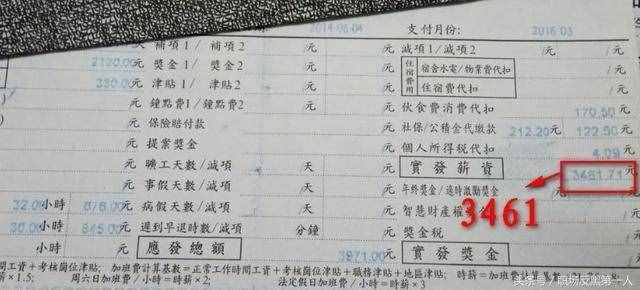 2014-06-04 支付月份: 2016 03
補項1/ 補項2 元 減項1/減項2 /元 /元
2130.00元 獎金1/ 獎金2 元 住宿費用 宿舍水電/物業費代扣 元
元 津貼1/ 津貼2 元 住宿費代扣 元
元 鐘點費1/鐘點費2 元 伙食費消費代扣 170.50元
元 保險賠付款 元 社保/公積金代繳款 212.20元 122.50元
元 提案獎金 元 個人所得税代扣 4.09元
元 曠工天數/減項 天 / 元 實發薪資 3461.71元
元 事假天數/減項 天 / 元 年終獎金/適時激勵獎金 元
32.00小時 876.00元 病假天數/減項 天 / 元 智慧財產權 3461 元
30.00小時 845.00元 遲到早退時數/減項 分鐘 / 元 獎金税 元
小時 元 應發總額 3971.00元 實發獎金 元
間工資+考核崗位津貼; 加班費計算基數=正常工作時間工資+考核崗位津貼+職務津貼+地區津貼; 時薪=加班費計算基數
×1.5; 周六日加班費/小時=時薪×2; 法定假日加班費/小時=時薪×3
头条号/职场反黑第一人